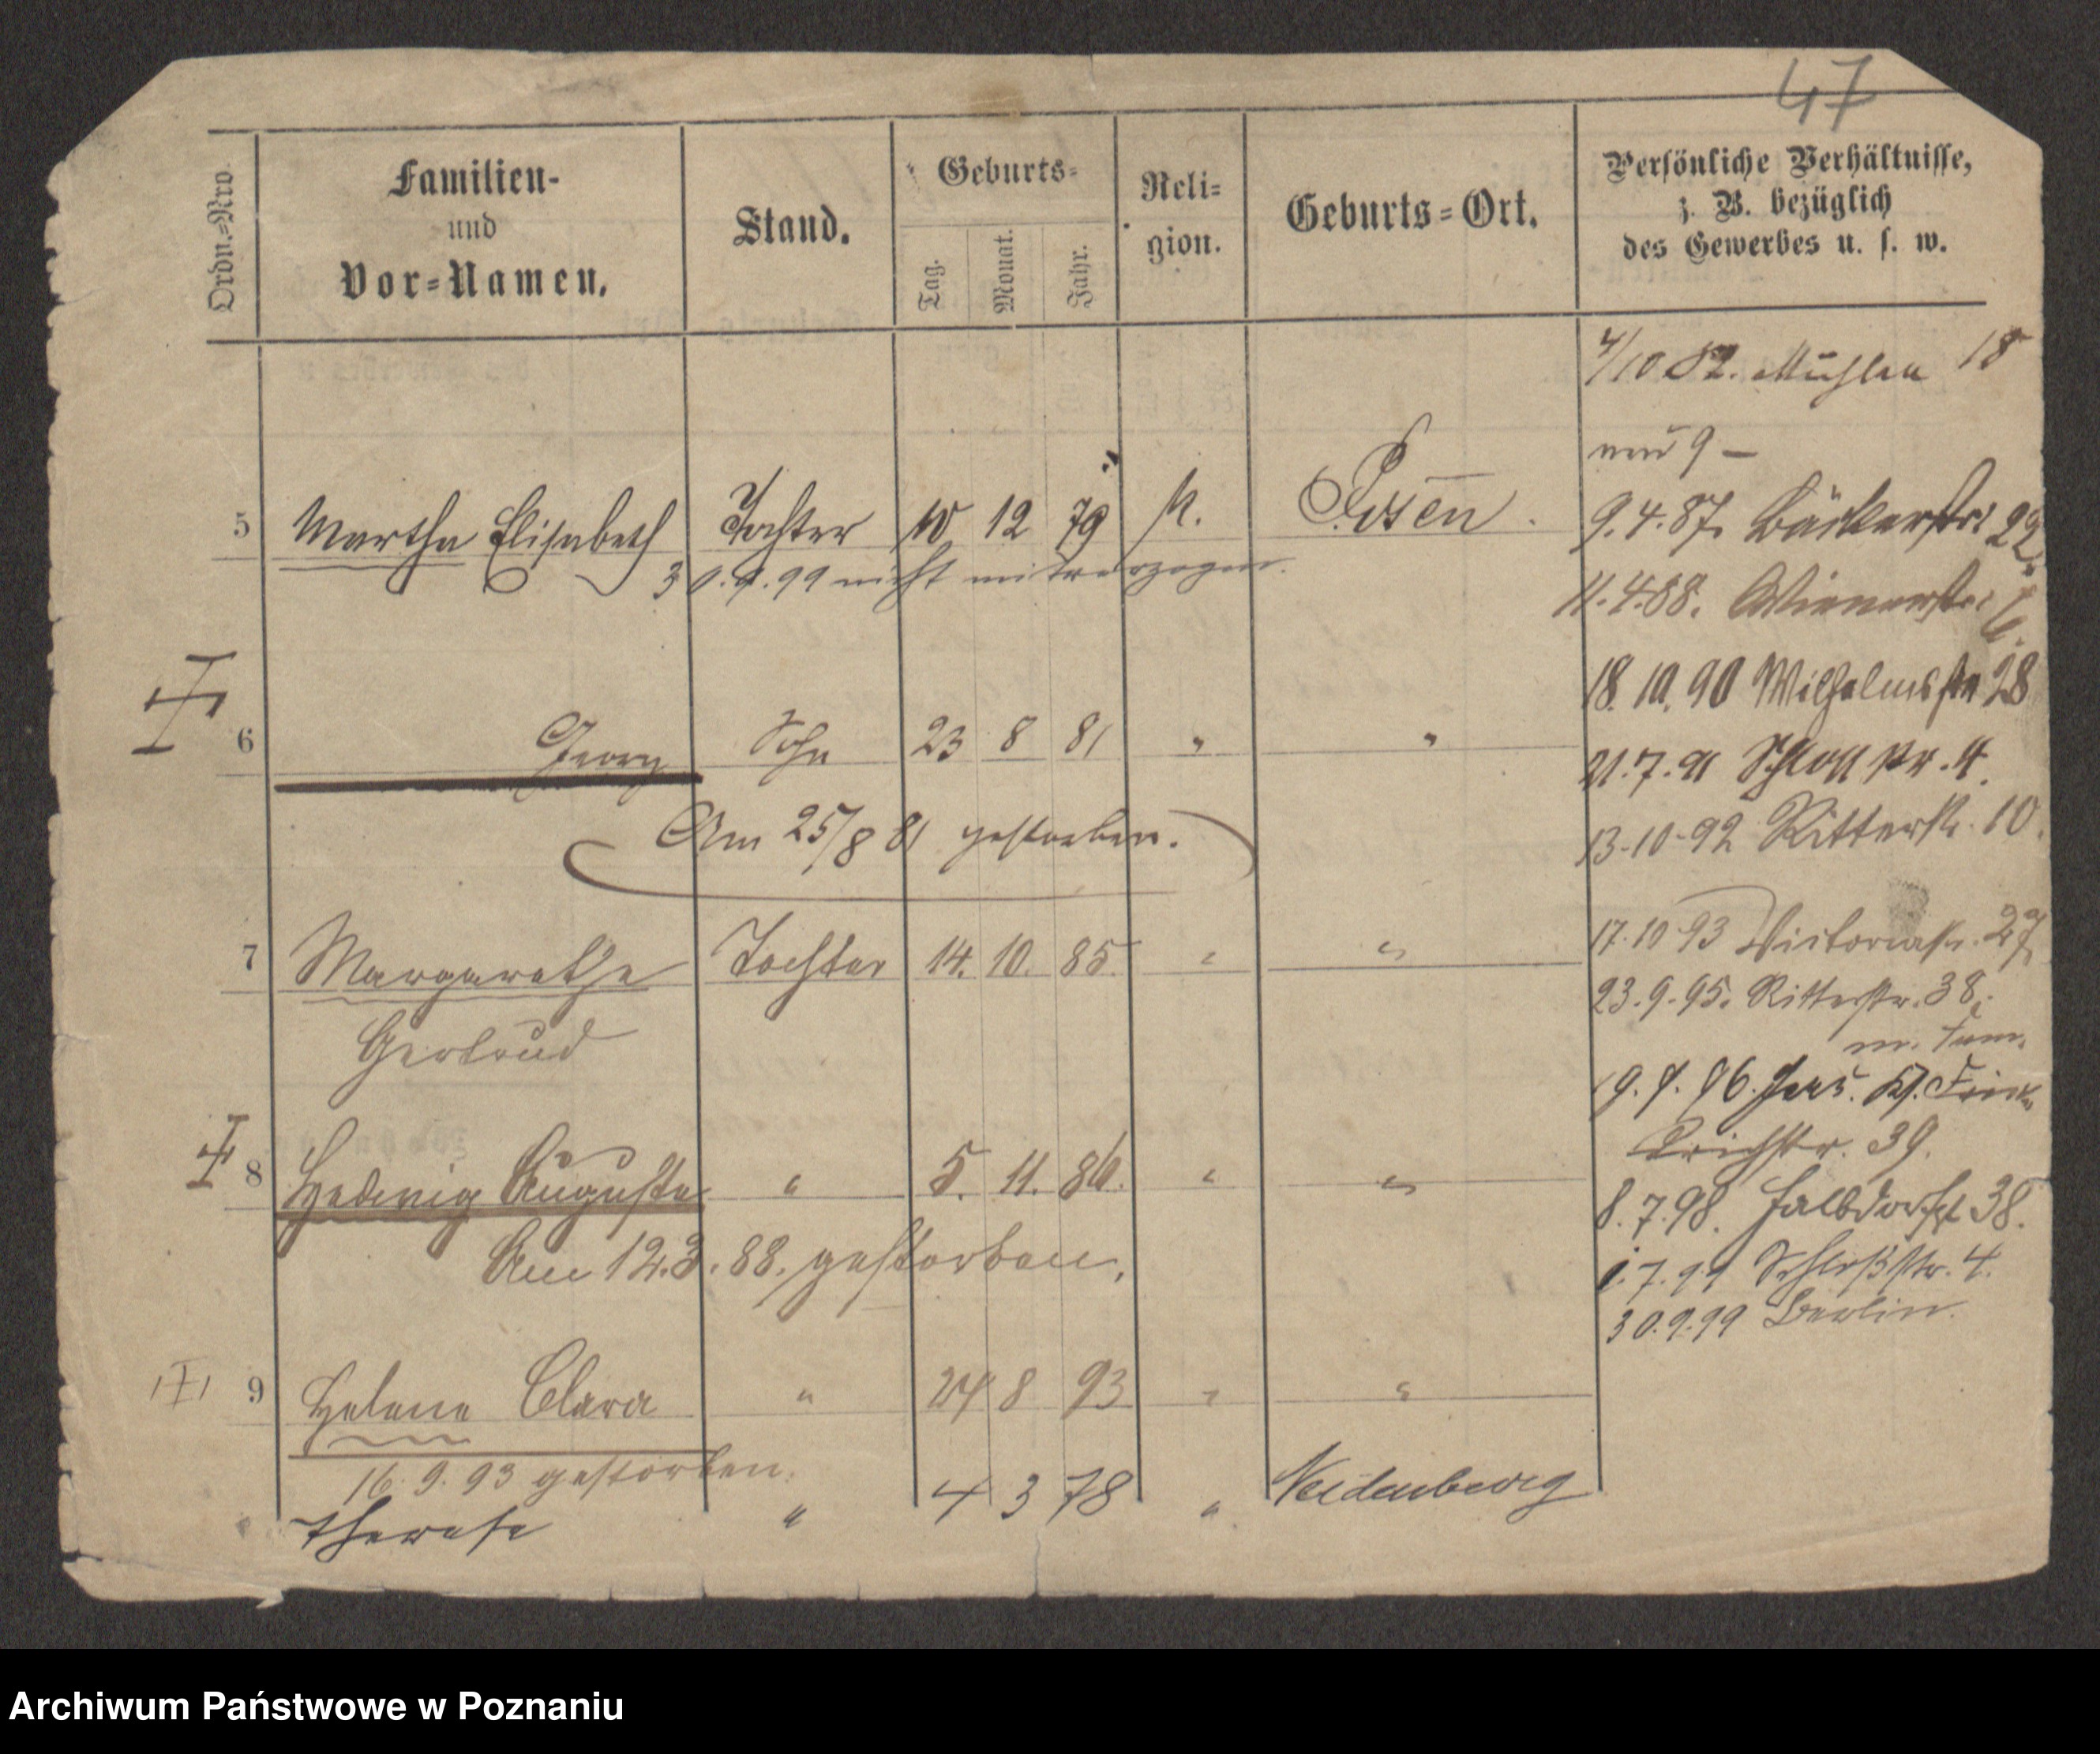 47
Ordn.=Nro.
Familien-
und
Vor=Namen.
Stand.
Geburts=
Tag.
Monat.
Jahr.
Reli=
gion.
Geburts=Ort.
Persönliche Verhältnisse,
z. B. bezüglich
des Gewerbes u. s. w.
4/10 82. Mühlen 18
neu 9 –
5 Martha Elisabeth Tochter 10 12 79 k. Posen.
30.9.99 nicht mitverzogen.
9.4.87. Bäckerstr. 22.
11.4.88. Wienerstr. 6.
18.10.90 Wilhelmsstr 28
6 Georg Sohn 23 8 81 " "
21.7.91 Schloss str. 4.
Am 25/8 81 gestorben.
13-10-92 Ritterstr. 10.
7 Margarethe Tochter 14. 10. 85. " "
Gertrud
17.10 93 Victoriastr. 27
23.9.95. Ritterstr. 38.
m. Fam.
9. 96. Jers.
39.
8 Hedwig Auguste " 5. 11. 86. " "
Am 12.3.88. gestorben.
8.7.98. Halbdorfstr 38.
1.7.99 Schloßstr. 4.
30.9.99 Berlin.
9 Helene Clara " 24 8 93 " "
16.9.93 gestorben.
Therese " 4 3 78 " Neidenberg
Archiwum Państwowe w Poznaniu